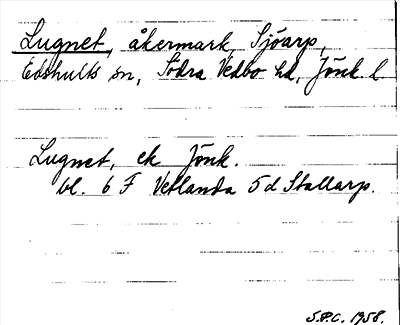 Lugnet, åkermark, Sjöarp,
Edshults sn, Södra Vedbo hd, Jönk. l.
Lugnet, ek Jönk.
bl. 6 F Vetlanda 5 d Stallarp.
S.P.C. 1958.